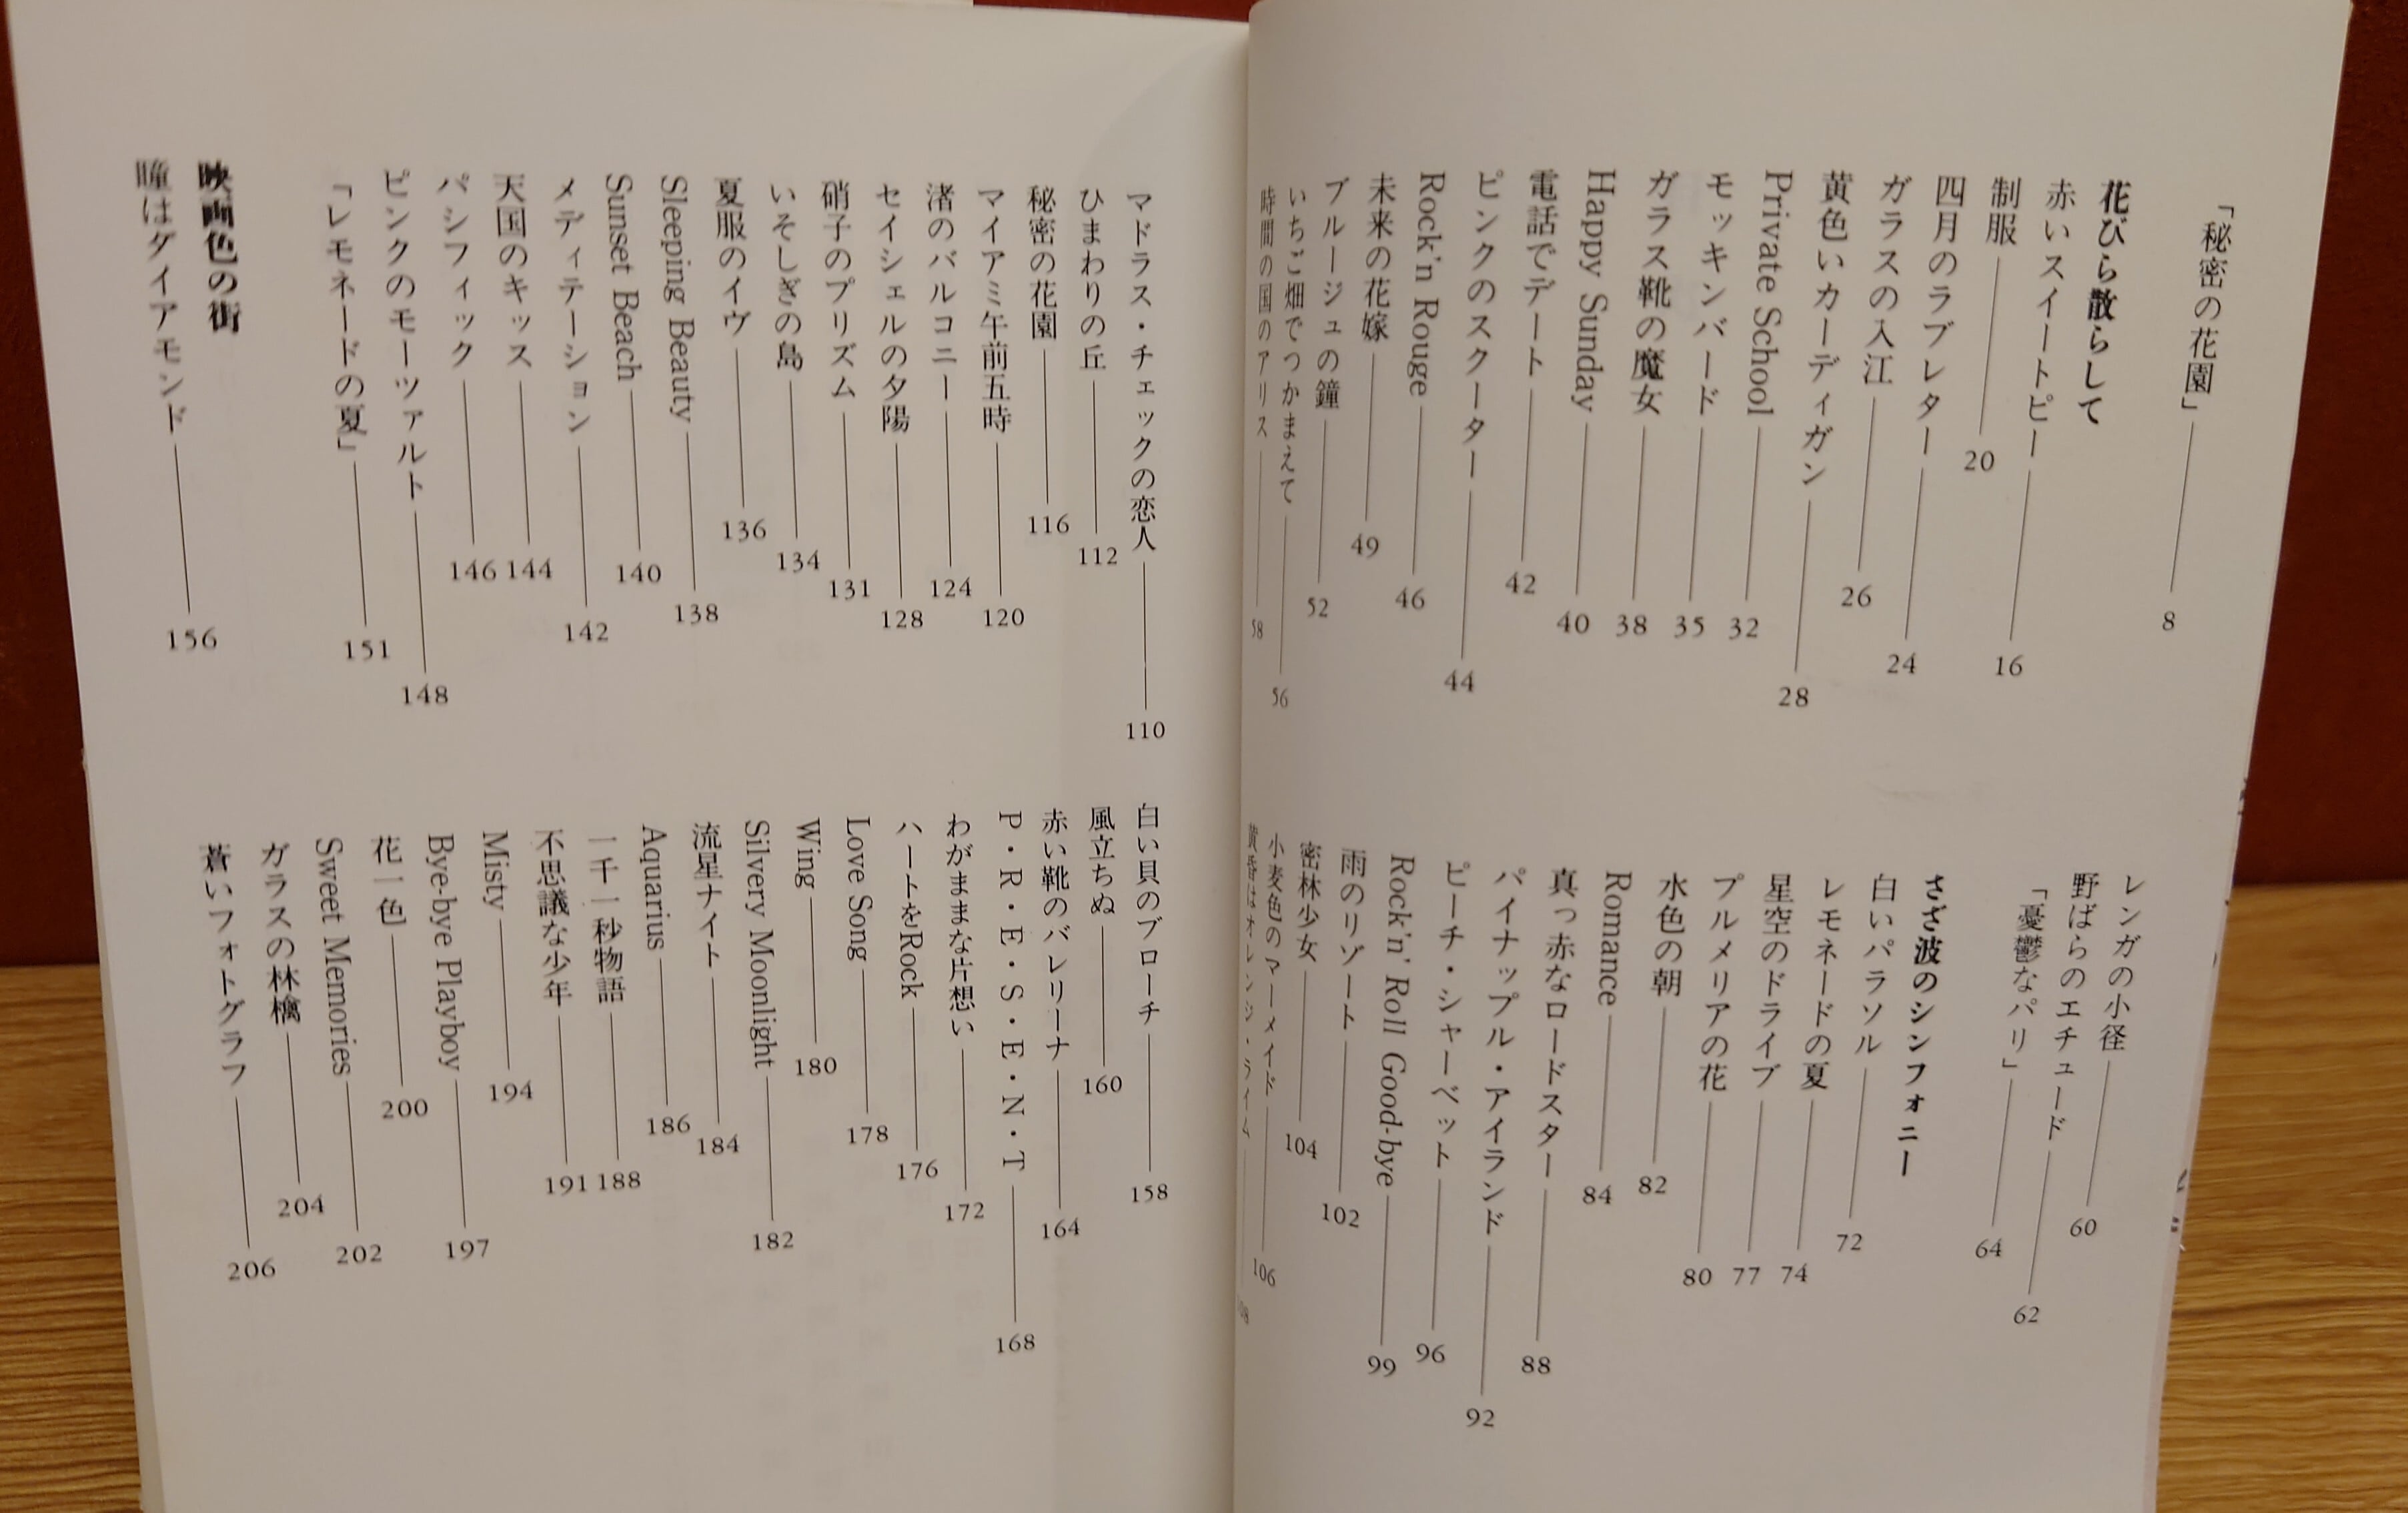 「秘密の花園」 8
花びら散らして
赤いスイートピー 16
制服 20
四月のラブレター 24
ガラスの入江 26
黄色いカーディガン 28
Private School 32
モッキンバード 35
ガラス靴の魔女 38
Happy Sunday 40
電話でデート 42
ピンクのスクーター 44
Rock'n Rouge 46
未来の花嫁 49
ブルージュの鐘 52
いちご畑でつかまえて 56
時間の国のアリス 58
レンガの小径 60
野ばらのエチュード 62
「憂鬱なパリ」 64
さざ波のシンフォニー
白いパラソル 72
レモネードの夏 74
星空のドライブ 77
プルメリアの花 80
水色の朝 82
Romance 84
真っ赤なロードスター 88
パイナップル・アイランド 92
ピーチ・シャーベット 96
Rock'n' Roll Good-bye 99
雨のリゾート 102
密林少女 104
小麦色のマーメイド 106
黄昏はオレンジ・ライム 108
マドラス・チェックの恋人 110
ひまわりの丘 112
秘密の花園 116
マイアミ午前五時 120
渚のバルコニー 124
セイシェルの夕陽 128
硝子のプリズム 131
いそしぎの島 134
夏服のイヴ 136
Sleeping Beauty 138
Sunset Beach 140
メディテーション 142
天国のキッス 144
パシフィック 146
ピンクのモーツァルト 148
「レモネードの夏」 151
映画色の街
瞳はダイアモンド 156
白い貝のブローチ 158
風立ちぬ 160
赤い靴のバレリーナ 164
P・R・E・S・E・N・T 168
わがままな片想い 172
ハートをRock 176
Love Song 178
Wing 180
Silvery Moonlight 182
流星ナイト 184
Aquarius 186
一千一秒物語 188
不思議な少年 191
Misty 194
Bye-bye Playboy 197
花一色 200
Sweet Memories 202
ガラスの林檎 204
蒼いフォトグラフ 206